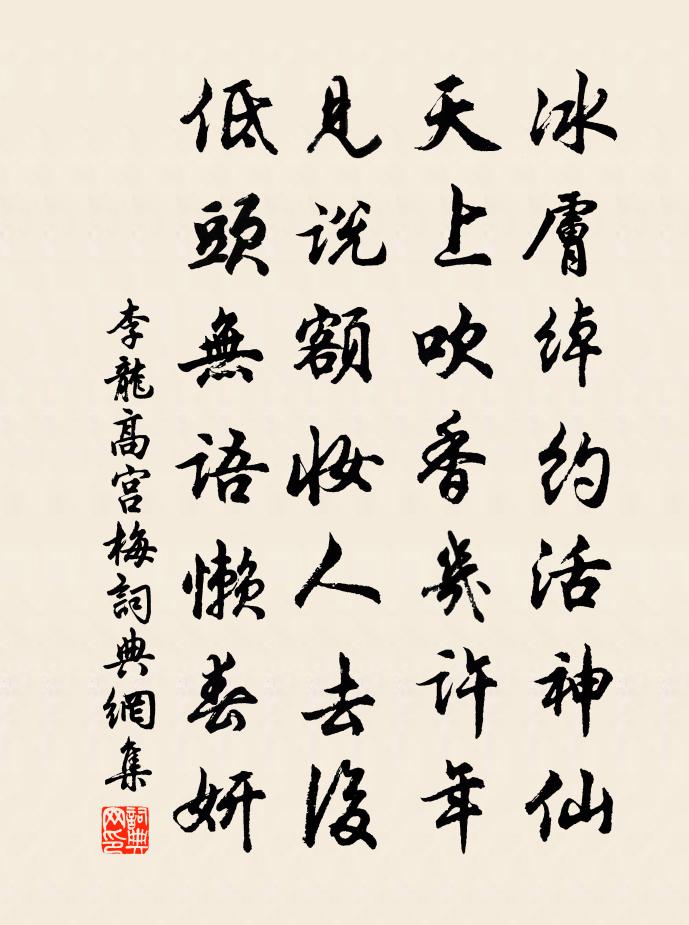 冰膚綽約活神仙
天上吹香幾許年
見説額妝人去後
低頭無語懶春妍
李龍高宮梅詞典網集
詞典網印